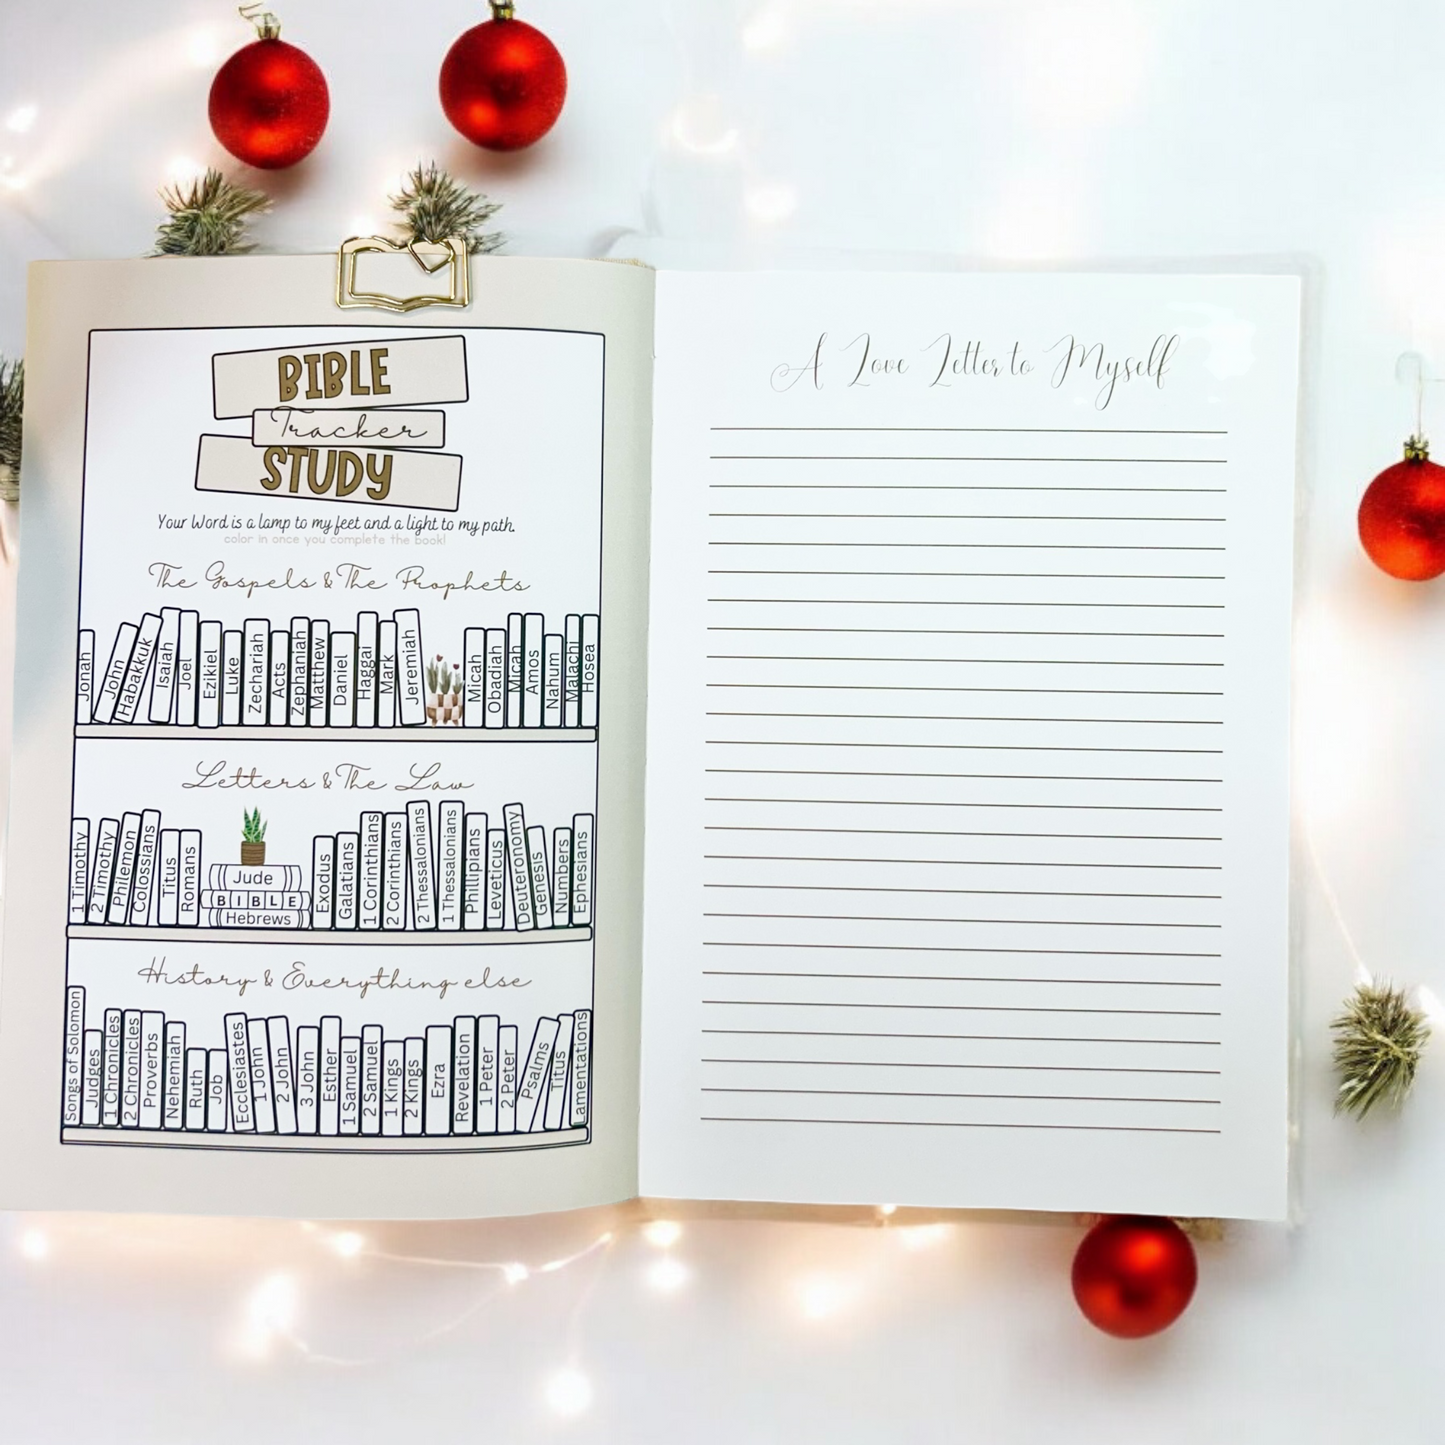 BIBLE
Tracker
STUDY
Your Word is a lamp to my feet and a light to my path.
color in once you complete the book!
The Gospels & The Prophets
Jonah
John
Habakkuk
Isaiah
Joel
Ezikiel
Luke
Zechariah
Acts
Zephaniah
Matthew
Daniel
Haggai
Mark
Jeremiah
Micah
Obadiah
Micah
Amos
Nahum
Malachi
Hosea
Letters & The Law
1 Timothy
2 Timothy
Philemon
Colossians
Titus
Romans
Jude
BIBLE
Hebrews
Exodus
Galatians
1 Corinthians
2 Corinthians
2 Thessalonians
1 Thessalonians
Phillipians
Leveticus
Deuteronomy
Genesis
Numbers
Ephesians
History & Everything else
Songs of Solomon
Judges
1 Chronicles
2 Chronicles
Proverbs
Nehemiah
Ruth
Job
Ecclesiastes
1 John
2 John
3 John
Esther
1 Samuel
2 Samuel
1 Kings
2 Kings
Ezra
Revelation
1 Peter
2 Peter
Psalms
Titus
Lamentations
A Love Letter to Myself